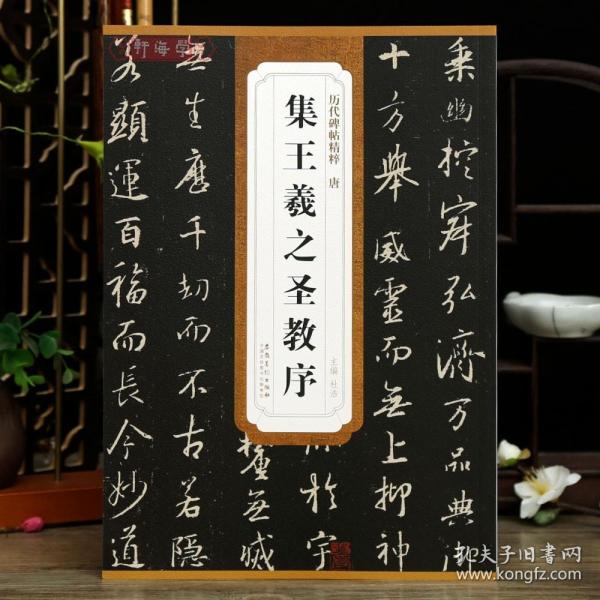 軒海學
历代碑帖精粹 唐
集王羲之圣教序
主编 杜浩
安徽美术出版社
乘幽控寂弘濟万品典
十方舉威靈而無上抑神
於宇
無滅
無生歷千劫而不古若隱
若顯運百福而長今妙道
孔夫子旧书网
www.kongfz.com